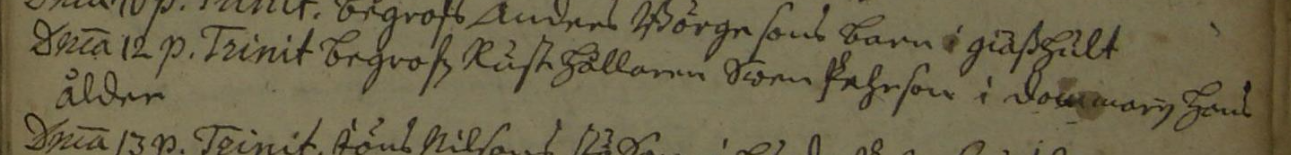 Dnica 10 p. Trinit. begrofs Anders Börgesons barn i giäshult
Dnica 12 p. Trinit begrofs Rusthållaren Swen Pehrson i Dommary hans
ålder
Dnica 13 p. Trinit. Jöns Nilsons